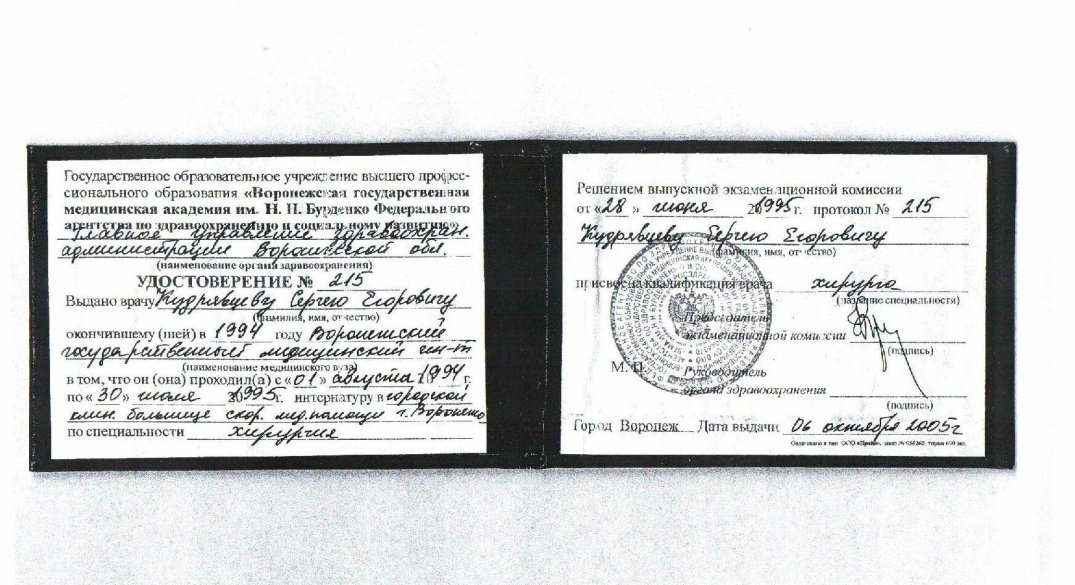 Государственное образовательное учреждение высшего профес-
сионального образования «Воронежская государственная
медицинская академия им. Н. Н. Бурденко Федерального
агентства по здравоохранению и социальному развитию»
Главное управление здравоохран.
администрации Воронежской обл.
(наименование органа здравоохранения)
УДОСТОВЕРЕНИЕ № 215
Выдано врачу Кудрявцеву Сергею Егоровичу
(фамилия, имя, отчество)
окончившему (шей) в 1994 году Воронежский
государственный медицинский ин-т
(наименование медицинского вуза)
в том, что он (она) проходил(а) с «01» августа 1994 г.
по «30» июня 1995г. интернатуру в городской
клин. больнице скор. мед. помощи г. Воронежа
по специальности хирургия
Решением выпускной экзаменационной комиссии
от «28» июня 1995 г. протокол № 215
Кудрявцеву Сергею Егоровичу
(фамилия, имя, отчество)
присвоена квалификация врача хирурга
(название специальности)
Председатель
экзаменационной комиссии
(подпись)
М. П.
Руководитель
органа здравоохранения
(подпись)
Город Воронеж Дата выдачи 06 октября 2005г